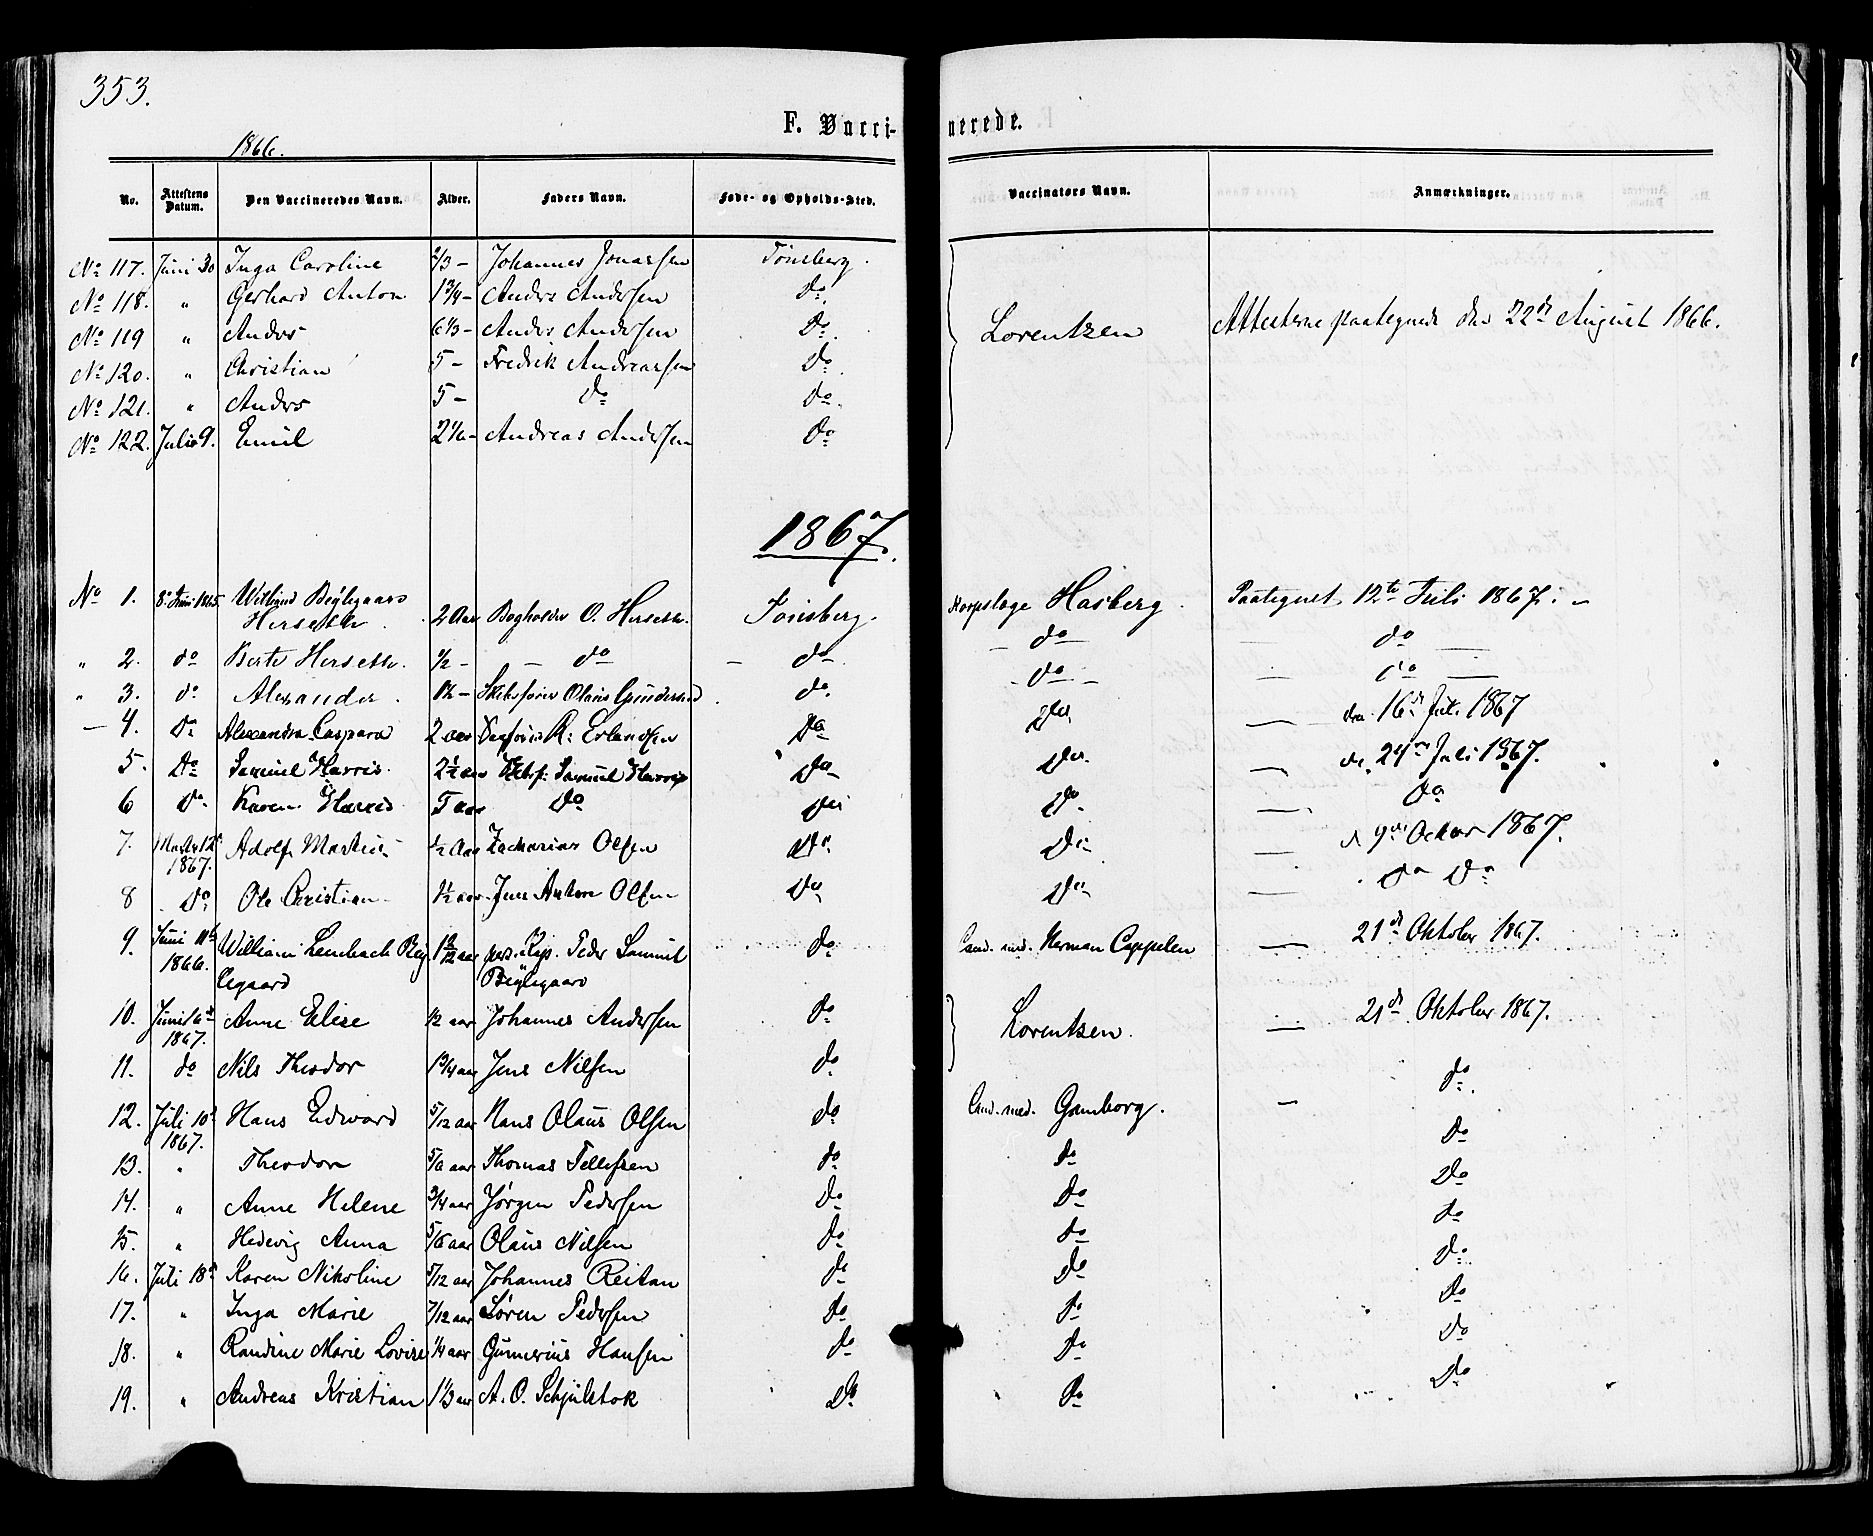 353.
F. Vaccinerede.
1866.
No. Attestens Datum. Den Vaccineredes Navn. Alder. Faders Navn. Føde- og Opholds-Sted. Vaccinatørs Navn. Anmærkninger.
No 117. Juni 30 Inga Caroline 2/3 - Johannes Jonassen Tønsberg.
No 118. " Gerhard Anton 1 3/4 - Anders Andersen Do.
No 119 " Anders 6 1/3 - Anders Andersen Do. Lorentzen Attesterne paategnede den 22de August 1866.
No 120. " Christian 5 - Fredrik Andreassen Do.
No 121. " Anders 5 - do do.
No 122. Juli 9. Emil 2 1/6 - Andreas Andersen Do
1867.
No 1. 8de Juni 1865. Herseth. 2 Aar Bogholder O. Herseth. Tønsberg. Korpslæge Hasberg. Paategnet 12te Juli 1867. -
" 2. do Herseth. 1/2 - do - do - do - do
" 3. do Alexander. 1 1/2 - Skibsfører Olaus Gundersen do. do do
- 4. Do Alexandra Caspara 2 aar R. Erlandsen Do Do - den 16de Juli 1867
5. Do Samuel Harris. 2 1/2 aar Samuel Harris Do Do. - d. 24de Juli 1867.
6 Do. Karen Harris 5 aar Do Do Do. - Do
7. 1867. Adolf 1/2 Aar Zacharias Olsen Do. Do - d 9de Octbr 1867.
8 Do Ole Christian 1 1/2 aar Jens Anton Olsen Do Do - Do Do
9. Juni 1866. William Lembach Bøylegaard aar Peder Samuel Bøylegaard do Cand. med. Herman Cappelen - 21de Oktober 1867.
10. Juni 1867. Anne Elise 1/2 aar Johannes Andersen do Lorentzen. - 21de Oktober 1867.
11. do Nils Theodor 1 3/4 aar Jens Nilsen do do.
12. Juli 10de 1867. Hans Edvard 5/12 aar Hans Olaus Olsen do Cand. med. Gamborg. - Do
13. " Theodor 5/6 aar Thomas Tellefsen do do Do
14. " Anne Helene 3/4 aar Jørgen Pedersen Do Do do
15. " Hedevig Anna 5/6 aar Olaus Nilsen do do do
16. Juli 18de Karen Nikoline 5/12 aar Johannes Reitan do Do Do
17. " Inga Marie 7/12 aar Søren Pedersen do do Do
18. " Randine Marie Lovise 1/4 aar Gunnerius Hansen do Do Do
19. " Andreas Kristian 1 1/3 aar A. O. Schjulstok Do do